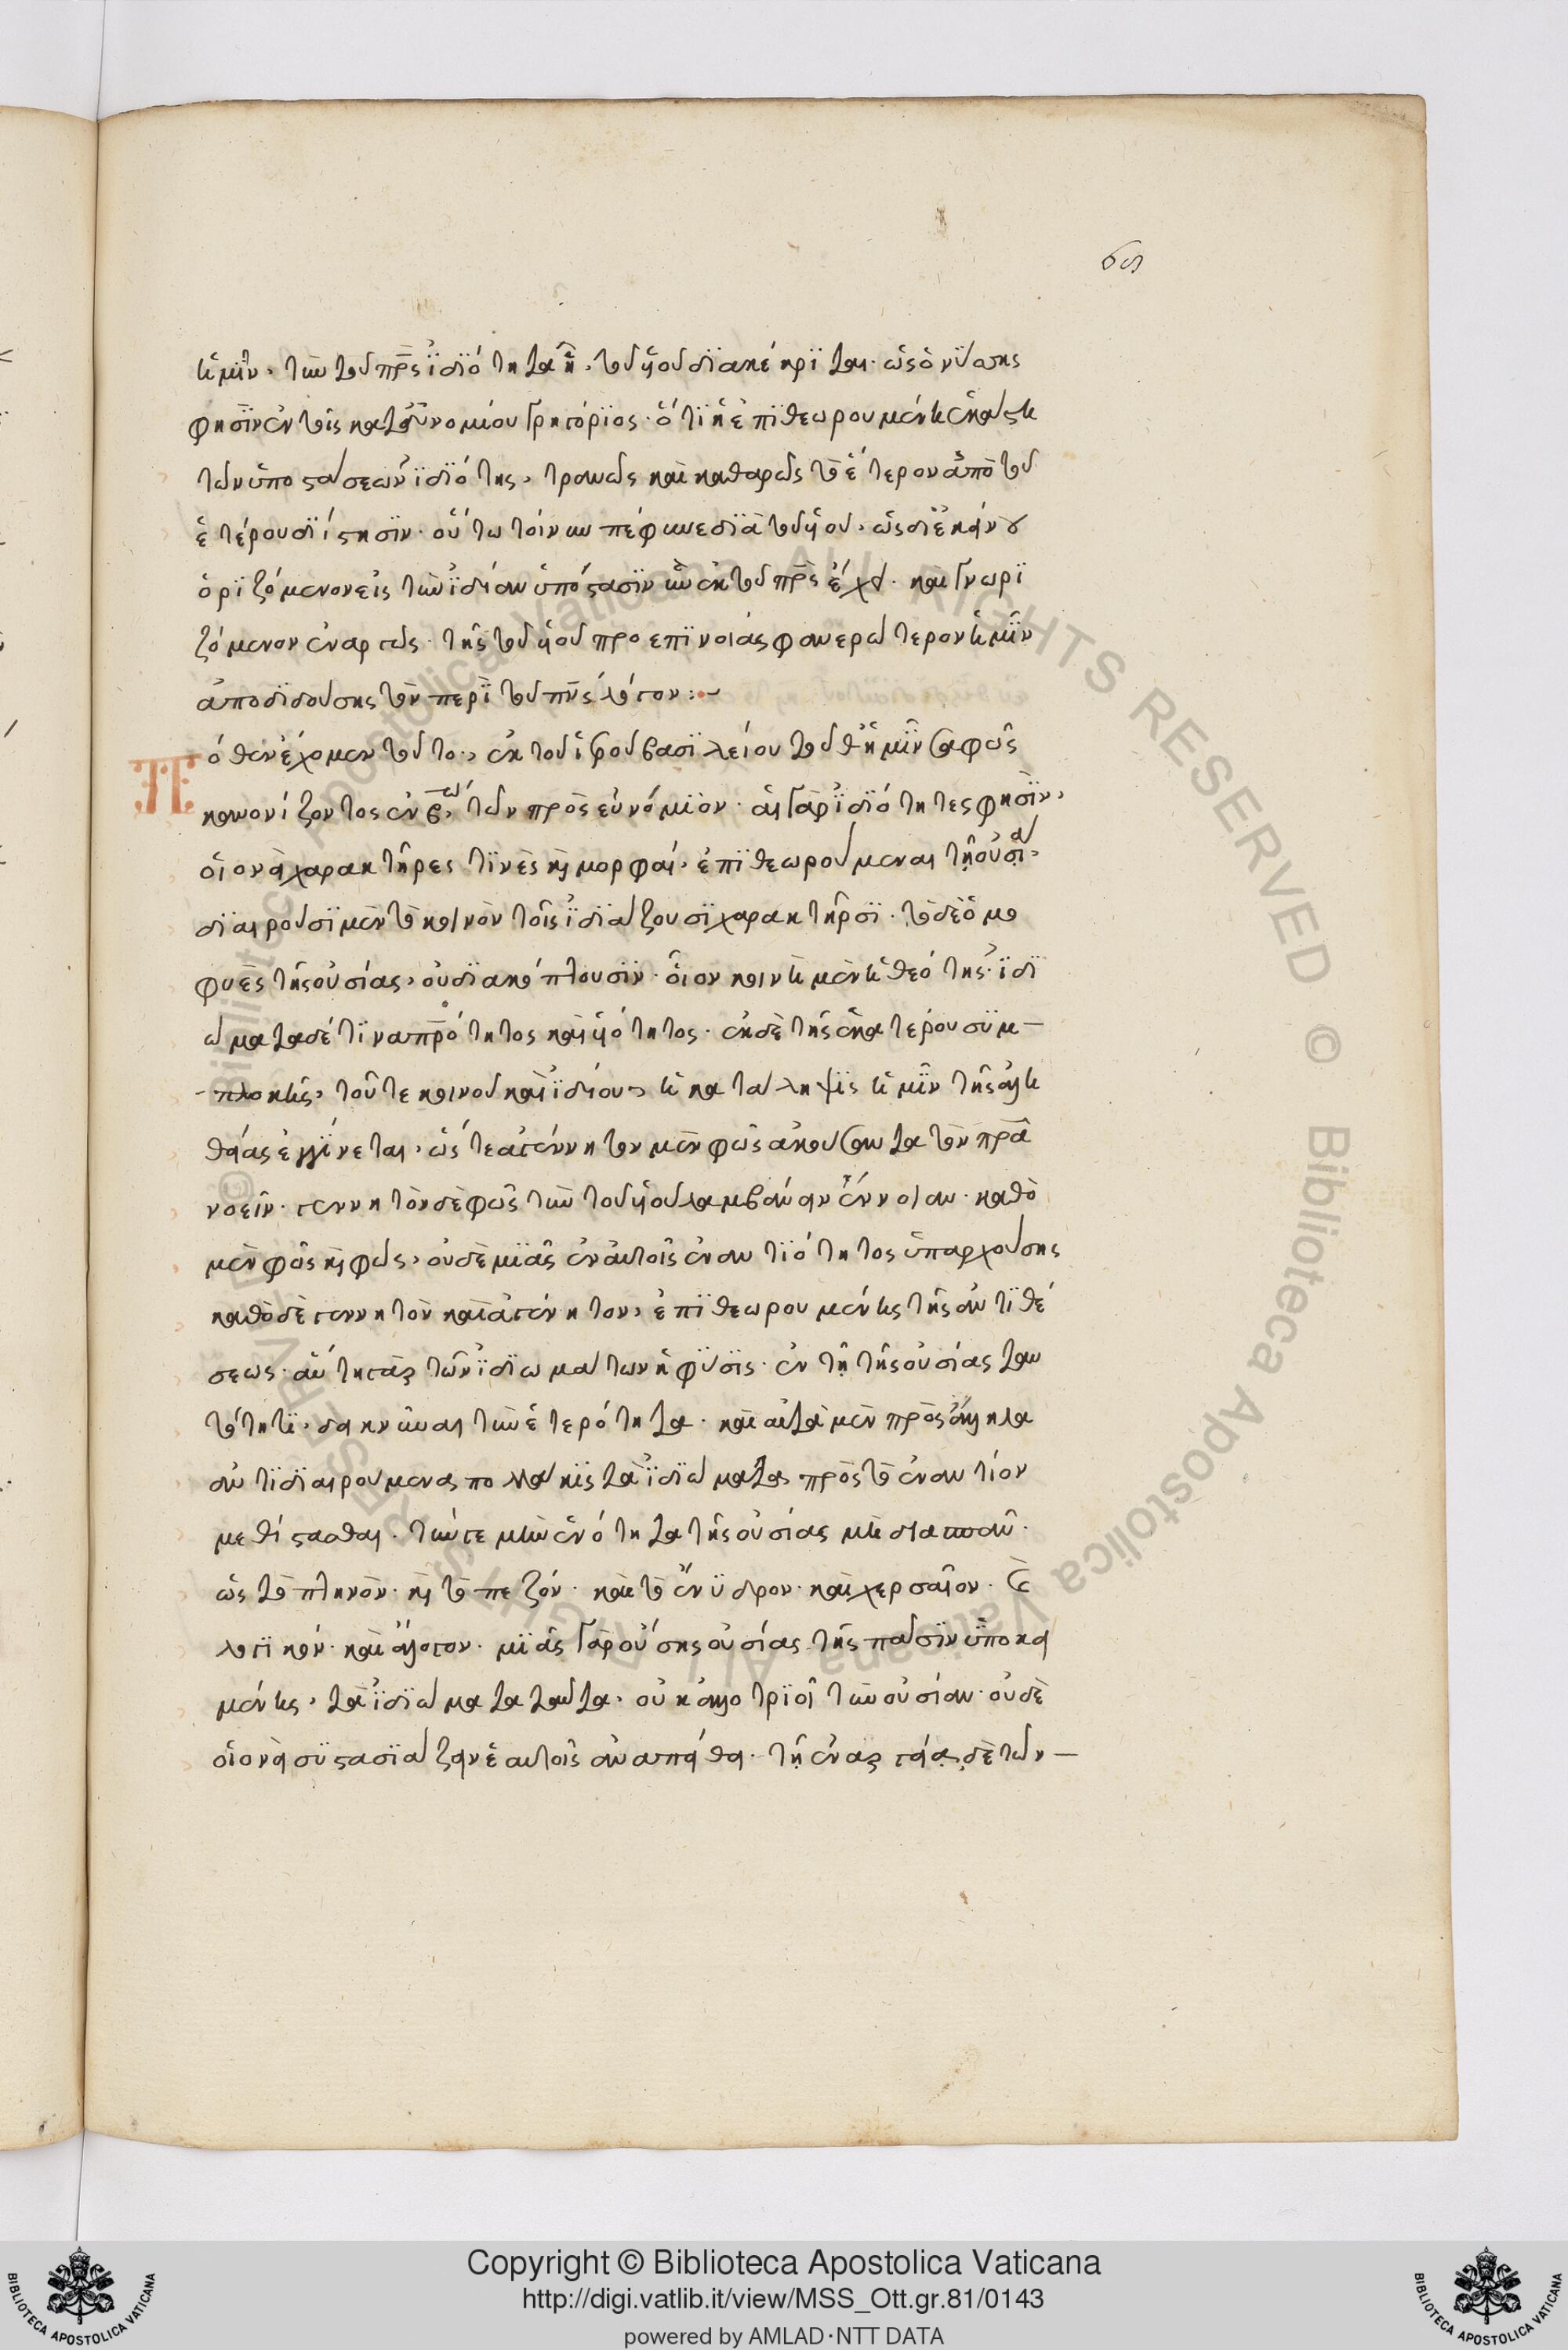 ξϛ
ἡμῖν, τὴν τοῦ πρς ἰδιότητα ἢ τοῦ υἱοῦ διακέκριται. ὡς ὁ νύσσης
φησὶν ἐν τοῖς κατ' εὐνομίου Γρηγόριος. ὅτι ἡ ἐπιθεωρουμένη ἑκάστη
τῶν ὑποστάσεων ἰδιότης, τρανῶς καὶ καθαρῶς τὸ ἕτερον ἀπὸ τοῦ
ἑτέρου διΐστησιν. οὕτω τοίνυν πέφηνε διὰ τοῦ υἱοῦ, ὡς δι' ἐκείνου
ὁριζόμενον εἰς τὴν ἰδίαν ὑπόστασιν ἣν ἐκ τοῦ πρς ἔχει. καὶ γνωρι
ζόμενον ἐναργῶς. τῆς τοῦ υἱοῦ προεπινοίας φανερώτερον ἡμῖν
ἀποδιδούσης τὸν περὶ τοῦ πνς λόγον :~
Πόθεν ἔχομεν τοῦτο, ἐκ τοῦ ἱεροῦ βασιλείου τοῦθ' ἡμῖν σαφῶς
κανονίζοντος ἐν β τῶν πρὸς εὐνόμιον. αἱ γὰρ ἰδιότητες φησὶν,
οἱονεὶ χαρακτῆρες τινὲς κ μορφαὶ, ἐπιθεωρούμεναι τῇ οὐσίᾳ,
διαιροῦσι μὲν τὸ κοινὸν τοῖς ἰδιάζουσι χαρακτῆρσι. τὸ δὲ ὁμο
φυὲς τῆς οὐσίας, οὐ διακόπτουσιν. οἷον κοινὴ μὲν ἡ θεότης. ἰδι
ώματα δέ τινα πρότητος καὶ υἱότητος. ἐκ δὲ τῆς ἑκατέρου συμ
πλοκῆς, τοῦ τε κοινοῦ καὶ ἰδίου, ἡ κατάληψις ἡμῖν τῆς ἀλη
θείας ἐγγίνεται, ὥστε ἀγέννητον μὲν φῶς ἀκούσαντα τὸν πρα
νοεῖν. γεννητὸν δὲ φῶς τὴν τοῦ υἱοῦ λαμβάνειν ἔννοιαν. καθὸ
μὲν φῶς κ φῶς, οὐδὲ μιᾶς ἐν αὐτοῖς ἐναντιότητος ὑπαρχούσης
καθὸ δὲ γεννητὸν καὶ ἀγένητον, ἐπιθεωρουμένης τῆς ἀντιθέ
σεως. αὕτη γὰρ τῶν ἰδιωμάτων ἡ φύσις. ἐν τῇ τῆς οὐσίας ταυ
τότητι, δεικνύναι τὴν ἑτερότητα. καὶ αὐτὰ μὲν πρὸς ἄλληλα
ἀντιδιαιρούμενα πολλάκις τὰ ἰδιώματα πρὸς τὸ ἐναντίον
μεθίστασθαι. τήν γε μὴν ἑνότητα τῆς οὐσίας μὴ διασπᾶν.
ὡς τὸ πτηνὸν. κ τὸ πεζόν. καὶ τὸ ἔνυδρον. καὶ χερσαῖον. καὶ
λογικὸν. καὶ ἄλογον. μιᾶς γὰρ οὔσης οὐσίας τῆς πᾶσιν ὑποκει
μένης, τὰ ἰδιώματα ταῦτα, οὐκ ἀλλοτριοῖ τὴν οὐσίαν. οὐδὲ
οἱονεὶ συστασιάζειν ἑαυτοῖς ἀναπείθει. τῇ ἐναργείᾳ δὲ τῶν
Copyright © Biblioteca Apostolica Vaticana
http://digi.vatlib.it/view/MSS_Ott.gr.81/0143
powered by AMLAD·NTT DATA
BIBLIOTECA APOSTOLICA VATICANA
BIBLIOTECA APOSTOLICA VATICANA